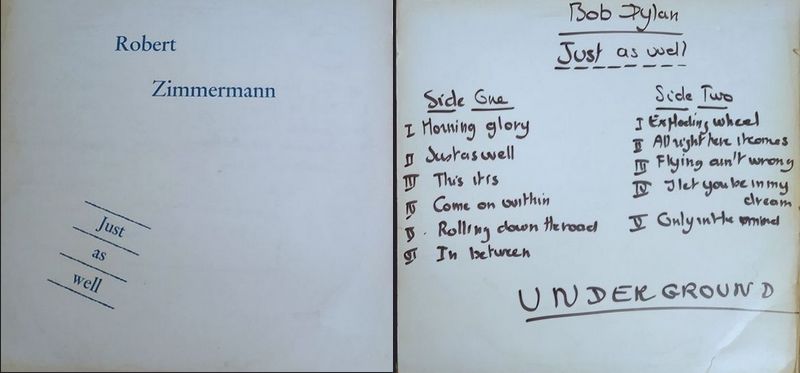 Robert
Zimmermann
Just
as
well
Bob Dylan
Just as well
Side One
I Morning glory
II Just as well
III This it is
IV Come on within
V. Rolling down the road
VI In between
Side Two
I Exploding wheel
II All right here it comes
III Flying ain't wrong
IV I let you be in my
dream
V Only in the mind
UNDERGROUND